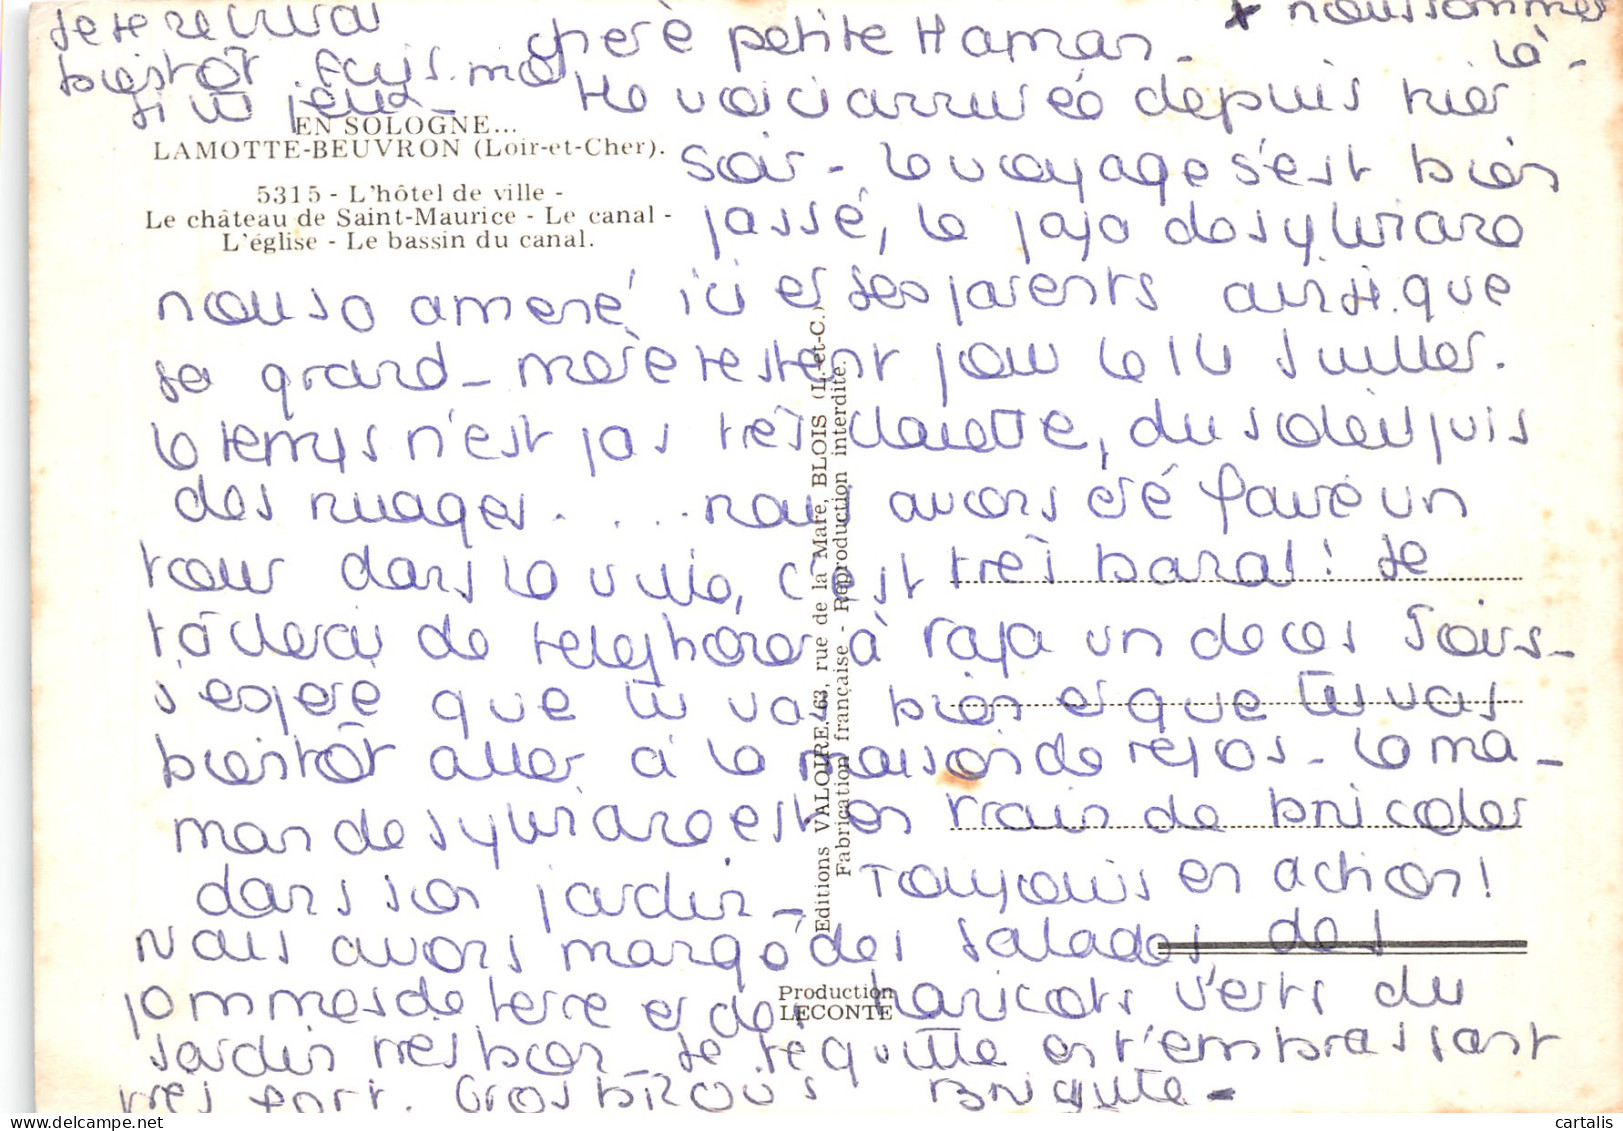 chère petite Maman -
* nous sommes
là -
Me voici arrivée depuis hier
soir - le voyage s'est bien
passé, le papa de sylviane
nous a amené ici et ses parents ainsi que
sa grand-mère restent pour le 14 Juillet.
le temps n'est pas très chouette, du soleil puis
des nuages . . . . nous avons été faire un
tour dans la ville, c'est très banal ! Je
tâcherai de telephoner à papa un de ces soirs -
J'espère que tu vas bien et que tu vas
bientôt aller à la maison de repos - la ma-
man de sylviane est en train de bricoler
dans son jardin - Toujours en action !
Nous avons mangé des salades, des
pommes de terre et des haricots verts du
jardin très bon - Je te quitte en t'embrassant
très fort. Gros bizous Brigitte -
Je te recrirai
bientôt. Ecris-moi
si tu peux -
EN SOLOGNE...
LAMOTTE-BEUVRON (Loir-et-Cher).
5315 - L'hôtel de ville -
Le château de Saint-Maurice - Le canal -
L'église - Le bassin du canal.
Editions VALOIRE, 63, rue de la Mare, BLOIS (L.-et-C.)
Fabrication française - Reproduction interdite.
Production
LECONTE
cartalis